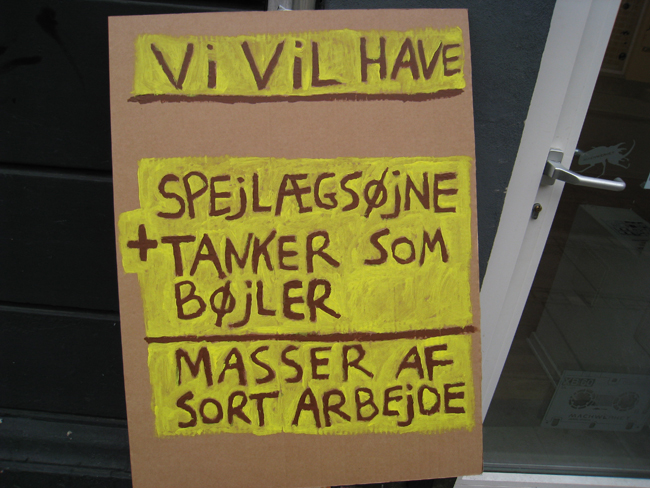 Vi ViL HAVE
SPEjLÆGSØjNE
+ TANKER SOM
BØjLER
MASSER AF
SORT ARBEjDE